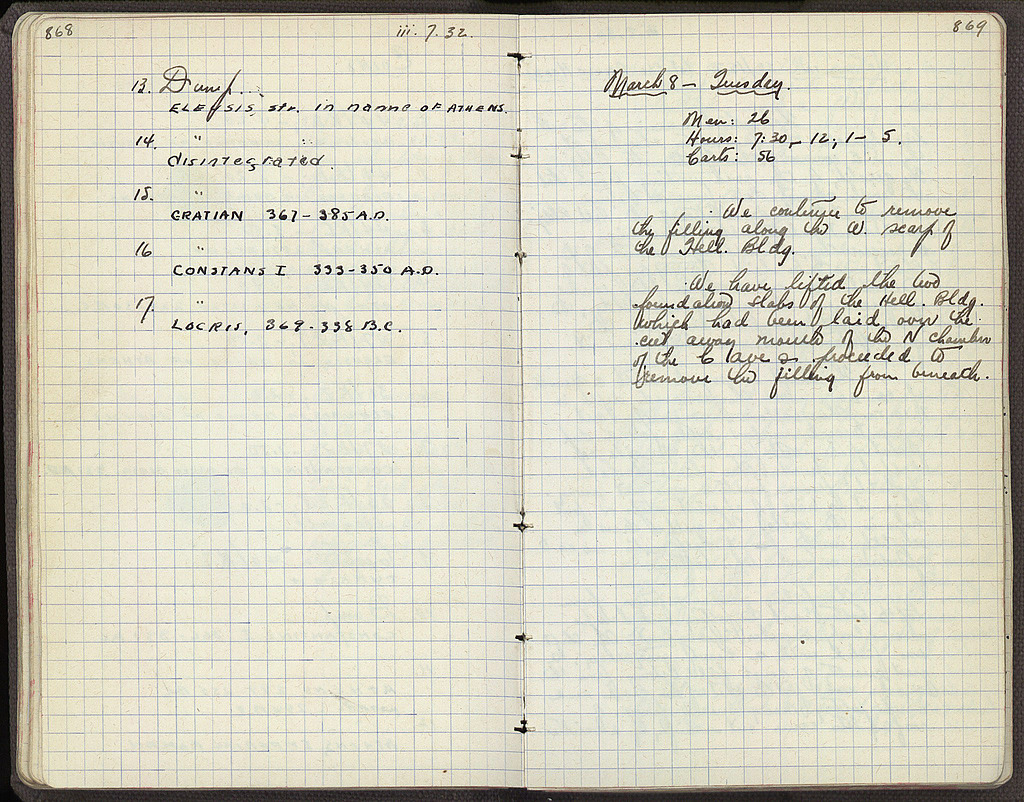 868
iii. 7. 32.
13. Dump...
ELEUSIS, str. in name OF ATHENS.
14. "
disintegrated.
15. "
GRATIAN 367-385 A.D.
16 "
CONSTANS I 333-350 A.D.
17. "
LOCRIS, 369-338 B.C.
869
March 8 – Tuesday.
Men: 26
Hours: 7:30 – 12; 1 – 5.
Carts: 56
We continue to remove
the filling along the W. scarp of
the Hell. Bldg.
We have lifted the two
foundation slabs of the Hell. Bldg.
which had been laid over the
cut away mouth of the N chamber
of the Cave & proceeded to
remove the filling from beneath.